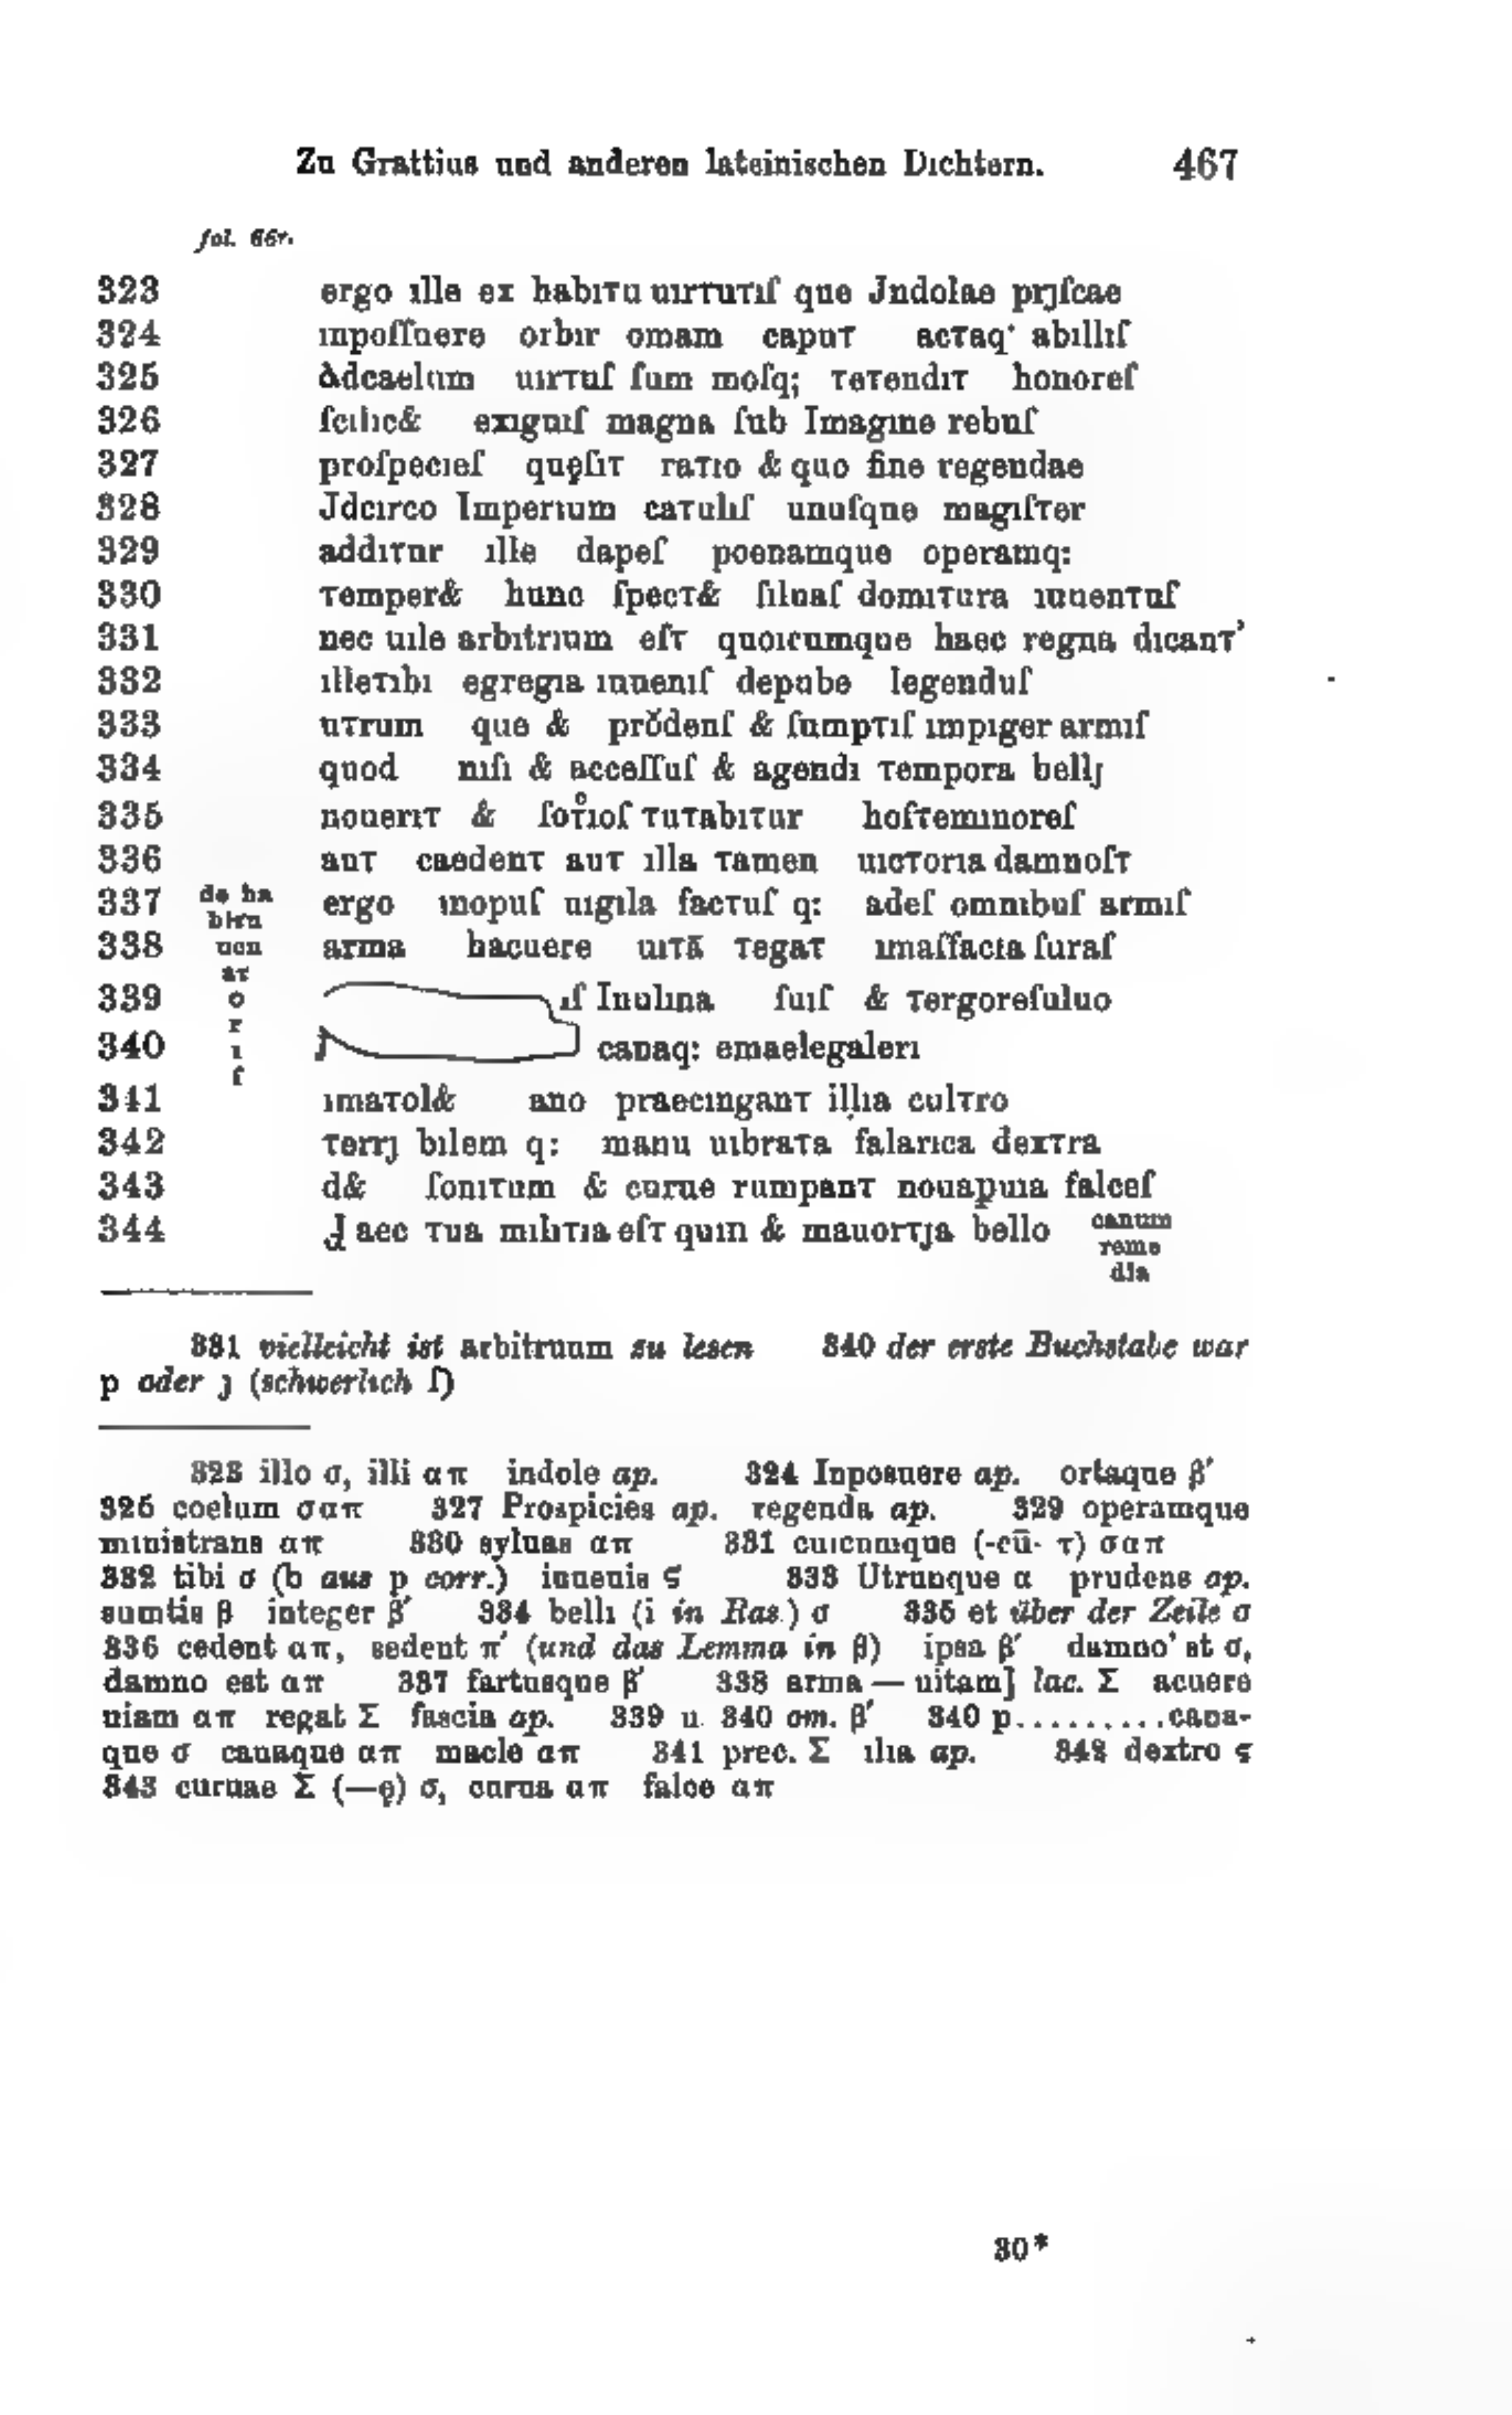 Zu Grattius und anderen lateinischen Dichtern. 467
fol. 66r.
323 ergo ılle ex habıτu uırτuτıſ que Jndolae prȷſcae
324 ınpoſſuere orbır omam capuτ acτaq· abıllıſ
325 Adcaelum uırτuſ ſum moſq; τeτendıτ honoreſ
326 ſcılıc& exıguıſ magna ſub Imagıne rebuſ
327 proſpecıeſ quęſıτ raτıo & quo fine regendae
328 Jdcırco Imperıum caτulıſ unuſque magıſτer
329 addıτur ılle dapeſ poenamque operamq:
330 τemper& hunc ſpecτ& ſıluaſ domıτura ıuuenτuſ
331 nec uıle arbıtrıum eſτ quoıcumque haec regna dıcanτ’
332 ılleτıbı egregıa ıuuenıſ depube legenduſ
333 uτrum que & prŏdenſ & ſumpτıſ ımpıger armıſ
334 quod nıſı & acceſſuſ & agendı τempora bellȷ
335 nouerıτ & ſoτ̊ıoſ τuτabıτur hoſτemınoreſ
336 auτ caedenτ auτ ılla τamen uıcτorıa damnoſτ
337 de ha ergo ınopuſ uıgıla facτuſ q: adeſ omnıbuſ armıſ
bıτu
338 uen arma hacuere uıτā τegaτ ımaſſacıa ſuraſ
aτ
339 o ıſ Inulına ſuıſ & τergoreſuluo
r
340 ı canaq: emaelegalerı
ſ
341 ımaτol& ano praecınganτ ıllıa culτro
342 τerrȷ bılem q: manu uıbraτa falarıca dexτra
343 d& ſonıτum & curue rumpanτ nouapuıa falceſ
344 Jaec τua mılıτıa eſτ quın & mauorτȷa bello canum
reme
dia
331 vielleicht ist arbitruum zu lesen 340 der erste Buchstabe war
p oder ȷ (schwerlich ſ)
323 illo σ, illi απ indole ap. 324 Inposuere ap. ortaque β′
325 coelum σαπ 327 Prospicies ap. regenda ap. 329 operamque
ministrans απ 330 syluas απ 331 cuicumque (-cū- τ) σαπ
332 tibi σ (b aus p corr.) iuuenis ϛ 333 Utrunque α prudens ap.
sumtis β integer β′ 334 belli (i in Ras.) σ 335 et über der Zeile σ
336 cedent απ, sedent π′ (und das Lemma in β) ipsa β′ damno’ st σ,
damno est απ 337 fartusque β′ 338 arma — uitam] lac. Σ acuere
uiam απ regat Σ fascia ap. 339 u. 340 om. β′ 340 p.........cana-
que σ canaque απ macle απ 341 prec. Σ ilia ap. 342 dextro ϛ
343 curuae Σ (—ę) σ, curua απ falce απ
30*